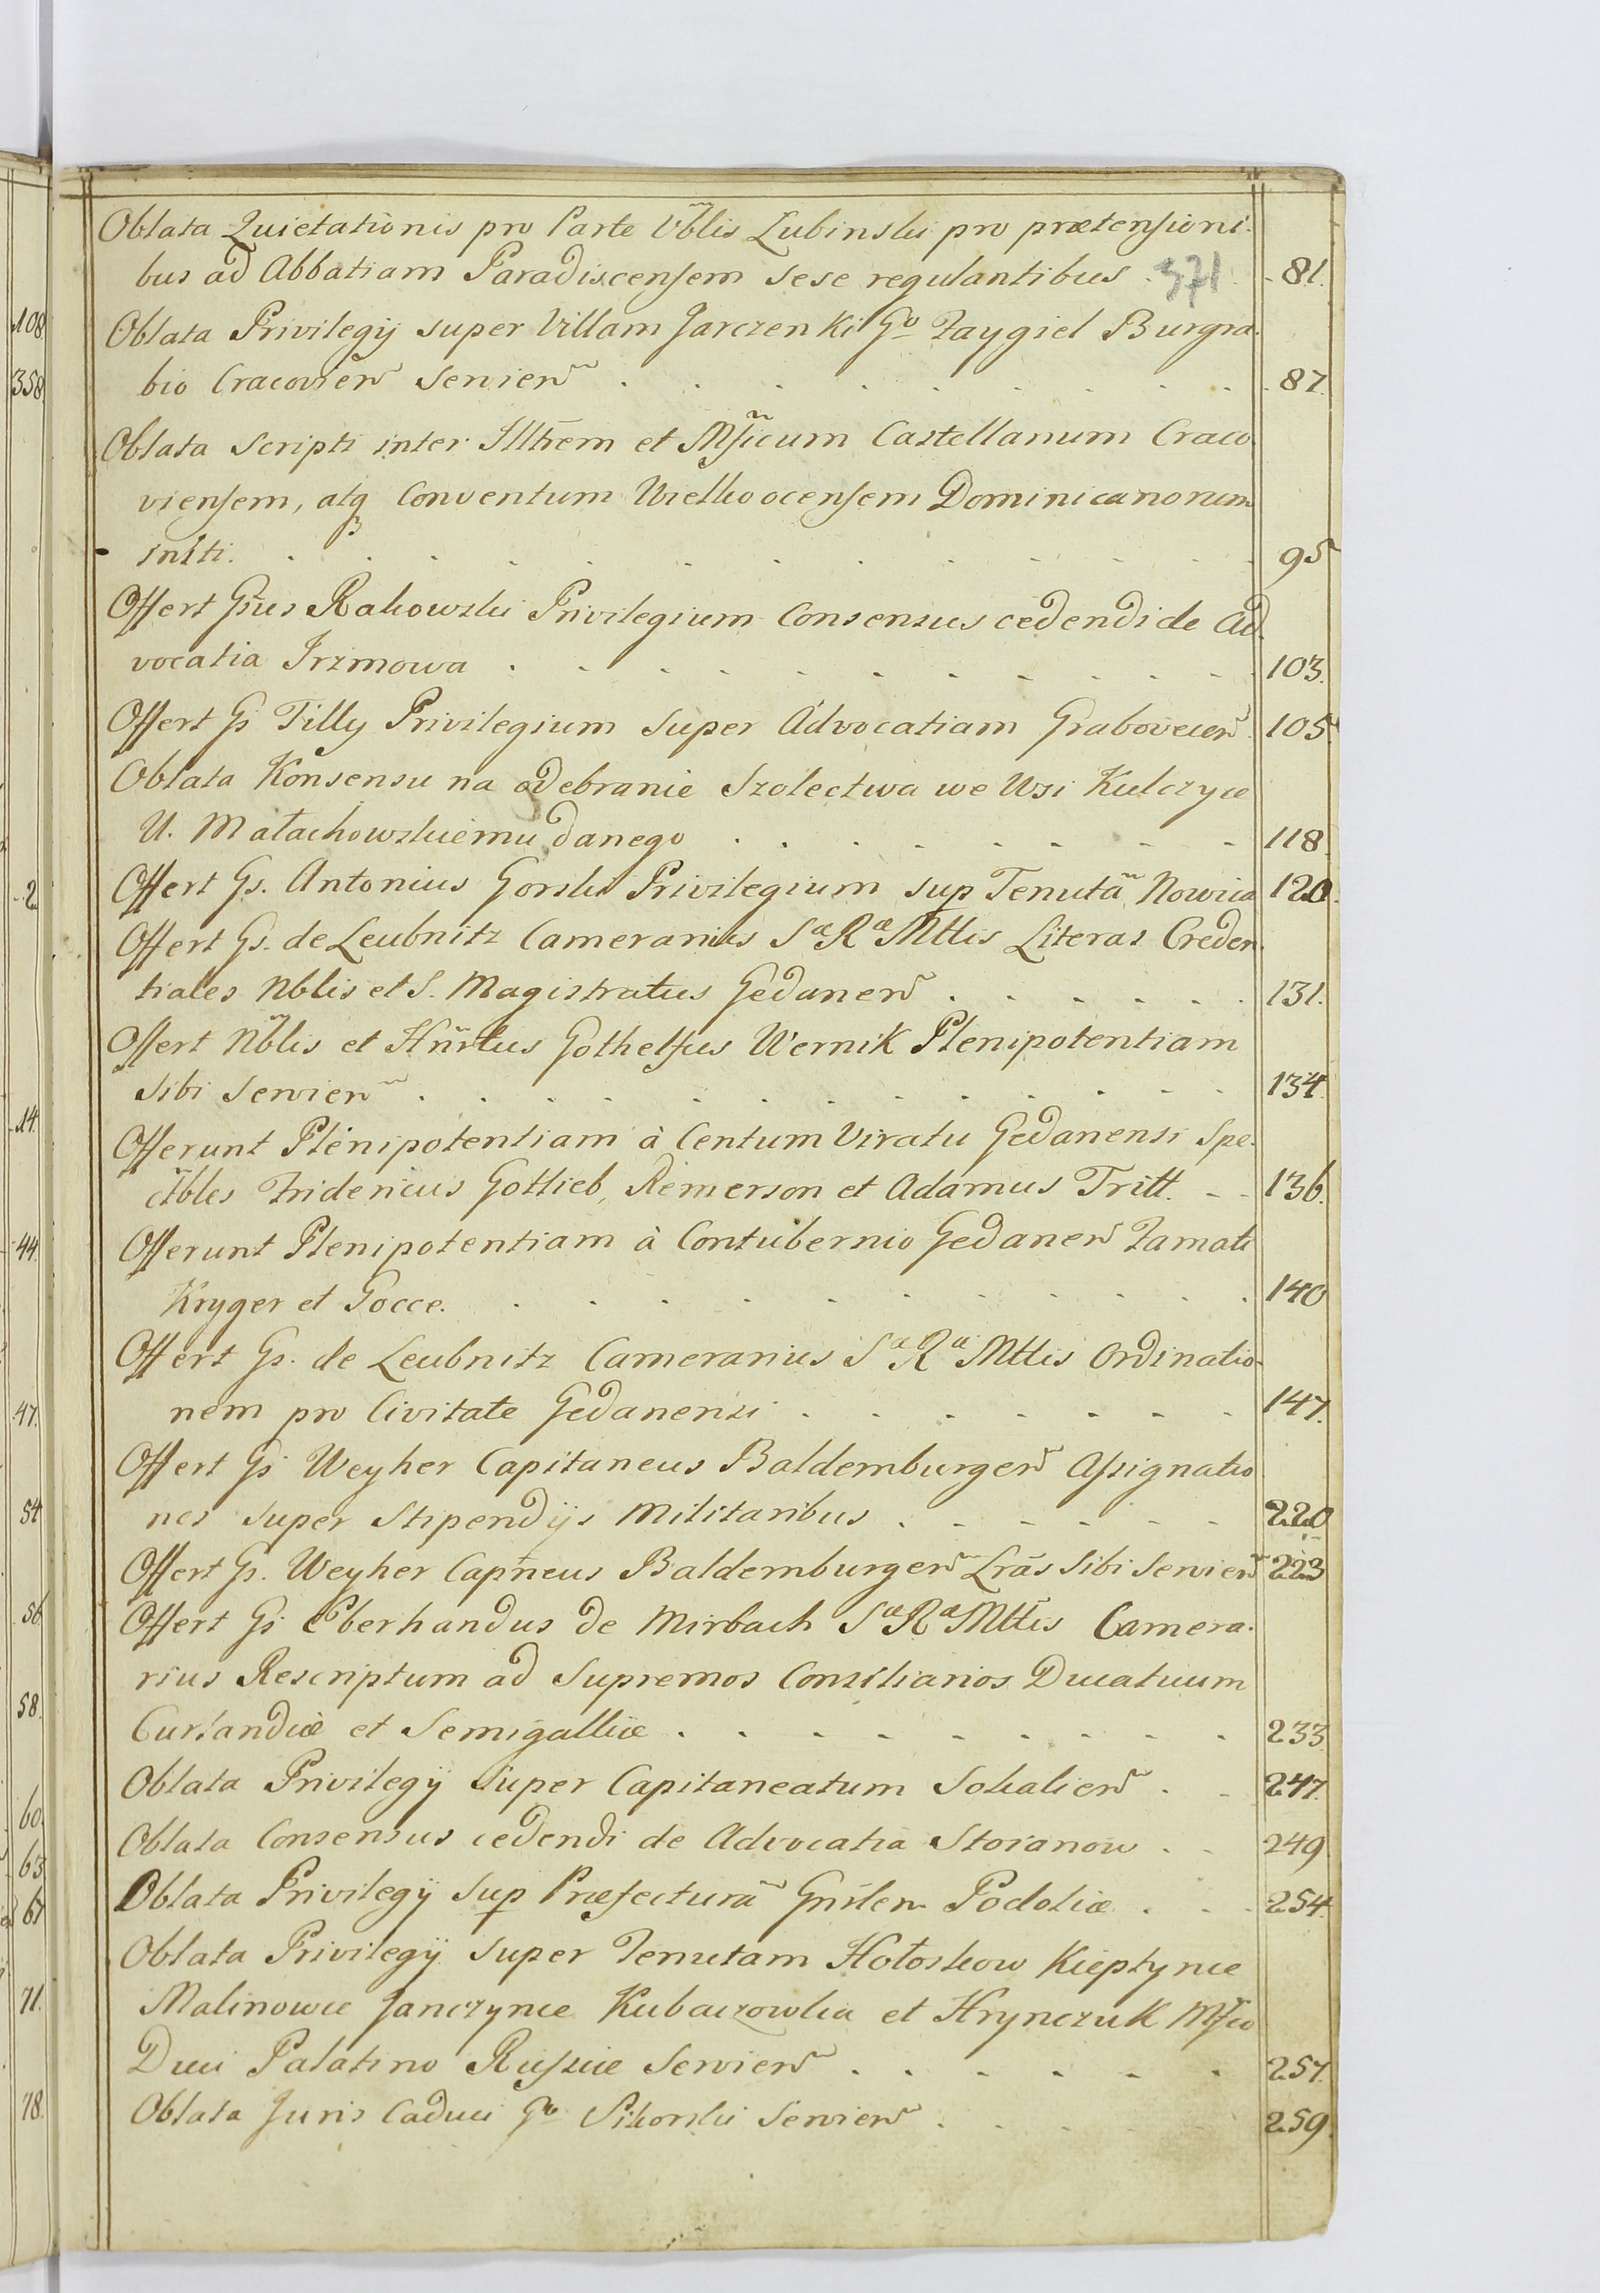 Oblata Quietationis pro Parte Vblis Lubinski pro prætensioni-
bus ad Abbatiam Paradiscensem sese regulantibus 371 81.
Oblata Privilegÿ super Villam Jarczenki Go Zaygiel Burgra-
bio Cracovien Servien 87.
Oblata Scripti inter Illtrem et Mficum Castellanum Craco
viensem, atq Conventum Wielkoocensem Dominicanorum
initi. 95
Offert Gsus Rakowski Privilegium Consensus cedendi de Ad-
vocatia Irzmowa 103.
Offert Gs Tilly Privilegium super Advocatiam Graboviecen 105.
Oblata Konsensu na odebranie Szolectwa we Wsi Kulczyce
U. Małachowskiemu danego 118
Offert Gs. Antonius Gorski Privilegium sup Tenutã Nowica 120.
Offert Gs. de Leubnitz Camerarius Sæ Ræ Mttis Literas Creden-
tiales Nblis et S. Magistratus Gedanen 131.
Offert Nblis et Hnrtus Gothelfus Wernik Plenipotentiam
sibi servien 134.
Offerunt Plenipotentiam à Centum Viratu Gedanensi Spe-
ctbles Fridericus Gottlieb, Remerson et Adamus Tritt. 136.
Offerunt Plenipotentiam à Contubernio Gedanen Famati
Kryger et Gocce. 140
Offert Gs. de Leubnitz Camerarius Sæ Ræ Mttis Ordinatio-
nem pro Civitate Gedanensi 147.
Offert Gs Weyher Capitaneus Baldemburgen Assignatio
nes super Stipendÿs Militaribus 220
Offert Gs. Weyher Capneus Baldemburgen Lras sibi servien 223
Offert Gs Eberhandus de Mirbach Sæ Ræ Mttis Camera-
rius Rescriptum ad Supremos Consiliarios Ducatuum
Curlandiæ et Semigalliæ 233
Oblata Privilegÿ super Capitaneatum Sokalien 247.
Oblata Consensus cedendi de Advocatia Stoianow 249
Oblata Privilegÿ sup Præfecturã Gnrlen Podoliæ 254.
Oblata Privilegÿ super Tenutam Hołoskow Kieptynce
Malinowce Janczynce Kubaczowka et Hrynczuk Mfico
Duci Palatino Russiæ Servien 257.
Oblata Juris Caduci Go Sikorski Servien 259.
108.
358.
2
14.
44.
47.
54
56
58.
60.
63
67
71.
78.